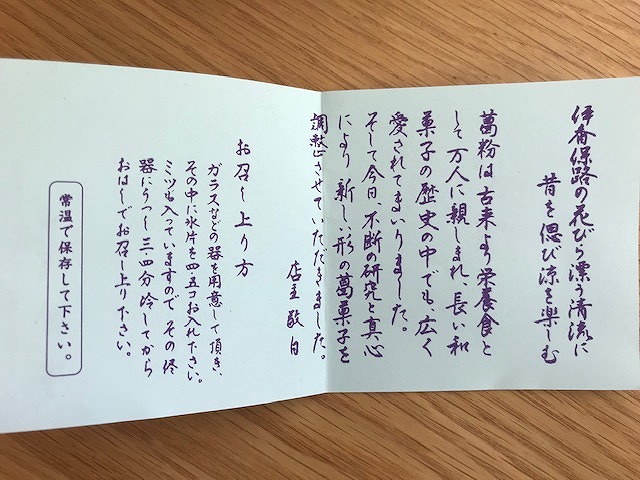 伊香保路の花びら漂う清流に
昔を偲び涼を楽しむ
葛粉は古来より栄養食と
して万人に親しまれ、長い和
菓子の歴史の中でも広く
愛されてまいりました。
そして今日、不断の研究と真心
により新しい形の葛菓子を
調整させていただきました。
店主敬白
お召し上り方
ガラスなどの器を用意して頂き、
その中に氷片を四五コお入れ下さい。
ミツも入っていますので、その侭
器にうつし三・四分冷してから
おはしでお召し上り下さい。
常温で保存して下さい。